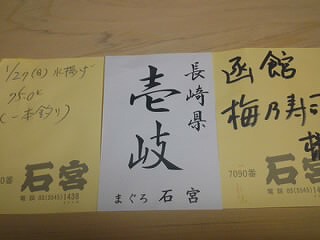 1/27(日) 水揚げ
75.0K
(一本釣り)
石宮
電話 03(5545)1438
長崎県
壱岐
まぐろ 石宮
函館
梅乃寿司
様
7090番
石宮
電話 03(5545)1438